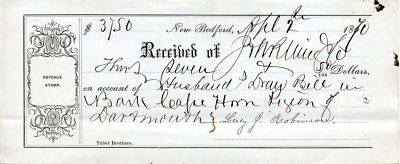 New Bedford, Apl 2 1870
$ 3750
Received of
Thirty Seven 50/100 Dollars,
on account of Husband's Draw Bill in
Bark Cape Horn Pigeon of
Dartmouth
Lucy J. Robinson
REVENUE
STAMP.
Taber Brothers.